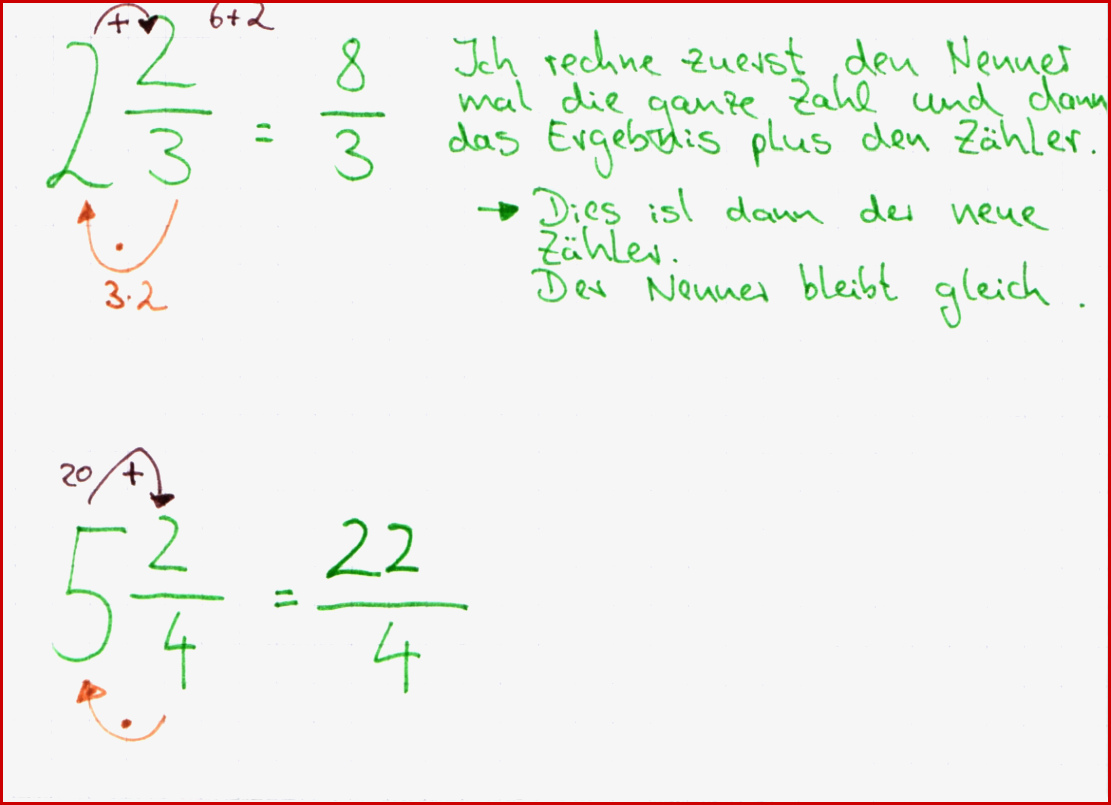 + 6+2
2 2/3 = 8/3
3·2
Ich rechne zuerst den Nenner
mal die ganze Zahl und dann
das Ergebnis plus den Zähler.
→ Dies ist dann der neue
Zähler.
Der Nenner bleibt gleich.
20 +
5 2/4 = 22/4
·